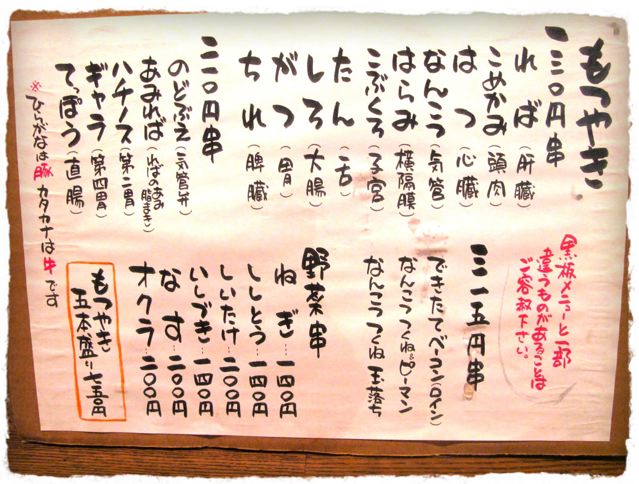 もつやき
一三〇円串
れば(肝臓)
こめかみ(頭肉)
はつ(心臓)
なんこつ(気管)
はらみ(横隔膜)
こぶくろ(子宮)
たん(舌)
しろ(大腸)
がつ(胃)
ちれ(脾臓)
二一〇円串
のどぶえ(気管弁)
あみれば(ればのあみ脂まき)
ハチノス(第二胃)
ギャラ(第四胃)
てっぽう(直腸)
※ひらがなは豚 カタカナは牛です
黒板メニューと一部
違うものがあることは
ご容赦下さい。
三一五円串
できたてベーコン(ロイン)
なんこつつくね&ピーマン
なんこつつくね玉落ち
野菜串
ねぎ…一四〇円
ししとう…一四〇円
しいたけ…二〇〇円
いしづき…一四〇円
なす…二〇〇円
オクラ…二〇〇円
もつやき
五本盛り七五〇円